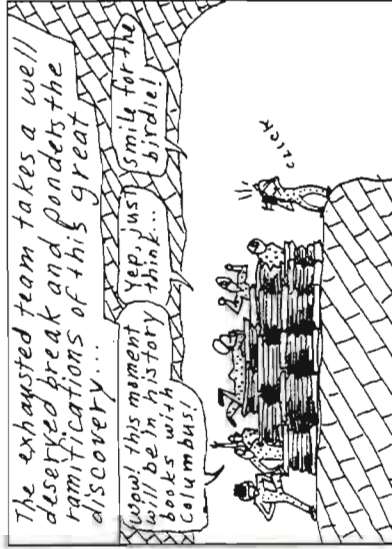 The exhausted team takes a well
deserved break and ponders the
ramifications of this great
discovery...
Wow! this moment
will be in history
books with
Columbus!
Yep, just
think...
smile for the
birdie!
CLICK